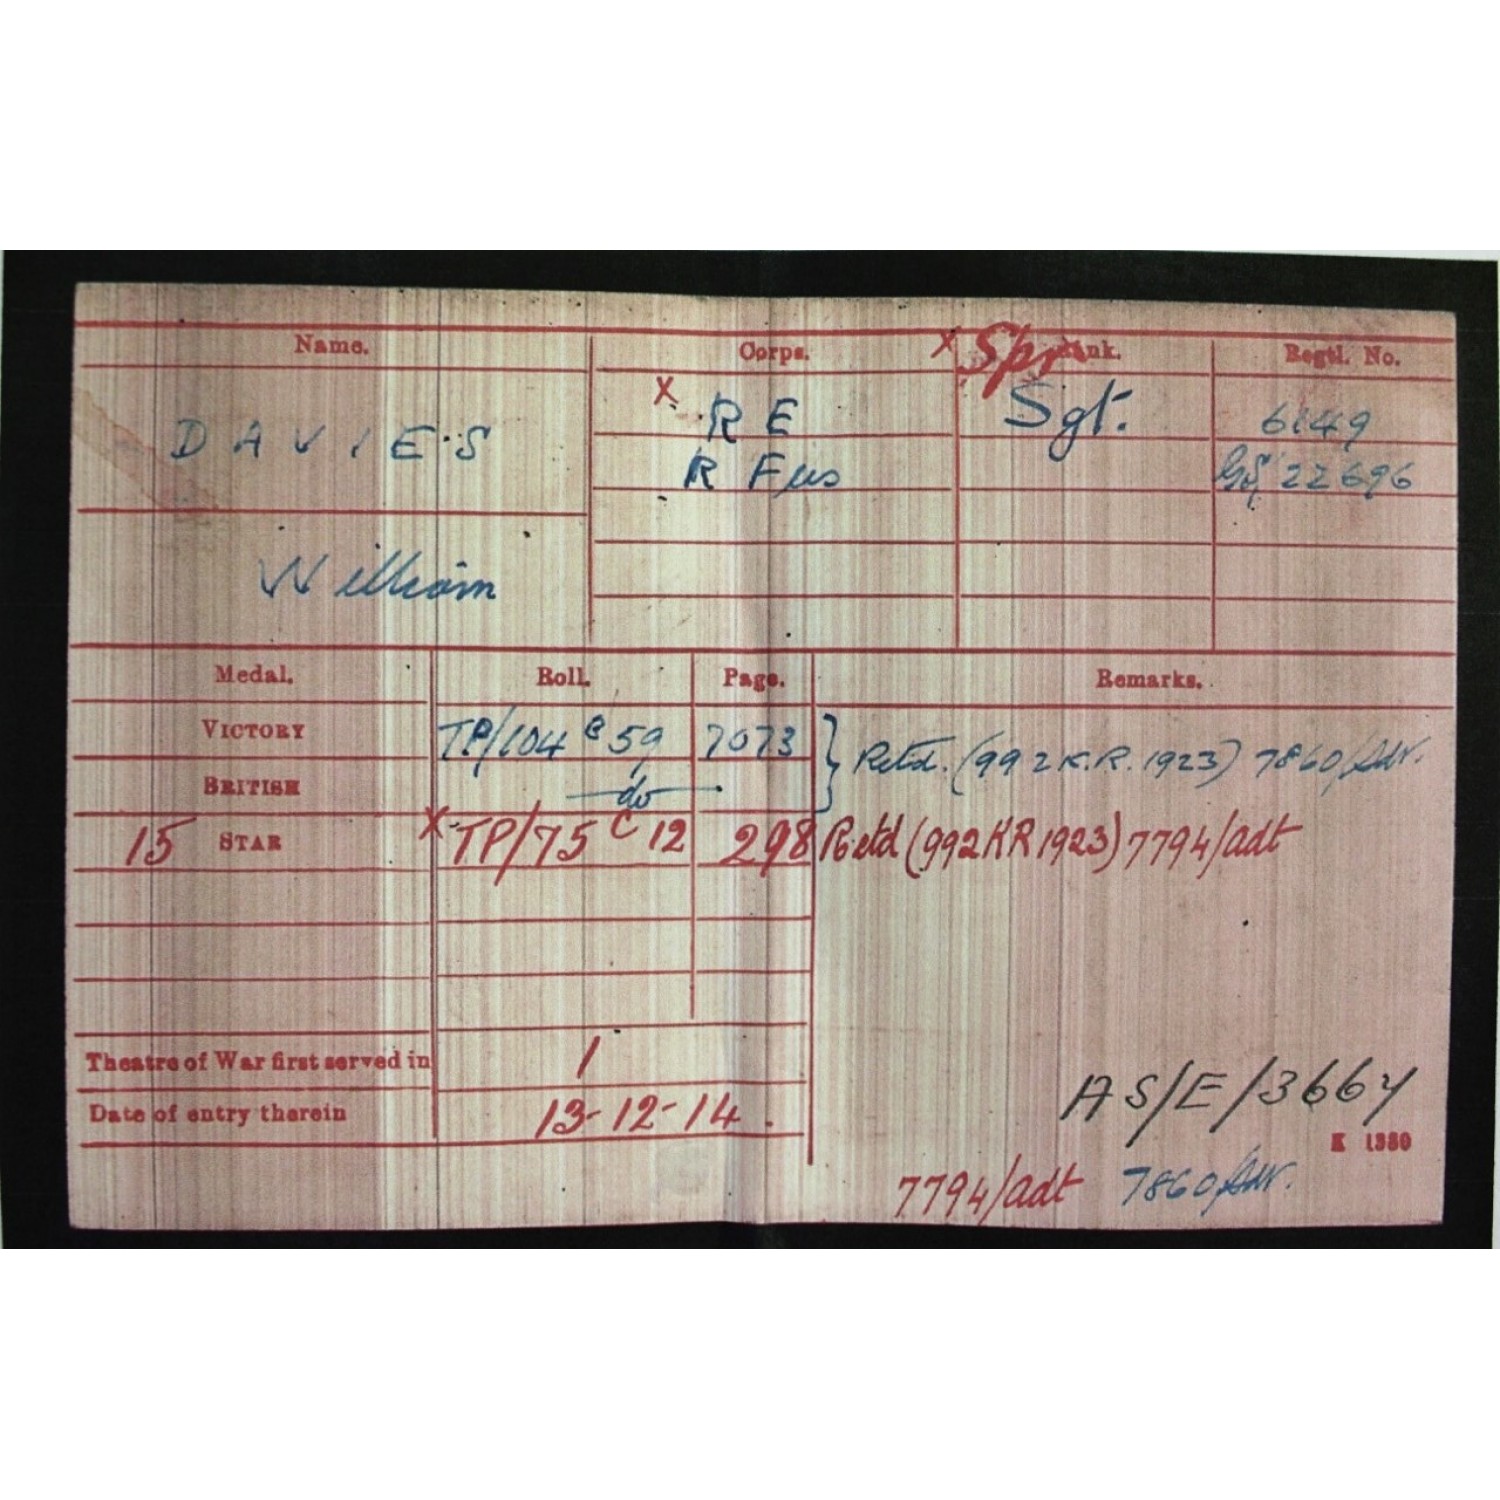 Name. Corps. x Spr Rank. Regtl. No.
x R E Sgt. 6149
DAVIES R Fus GS/22696
William
Medal. Roll. Page. Remarks.
VICTORY TP/104 B 59 7073 } Retd. (992 K.R. 1923) 7860/Adt.
BRITISH do
15 STAR x TP/75 C 12 298 Retd (992 KR 1923) 7794/adt
Theatre of War first served in 1
Date of entry therein 13-12-14.
AS/E/3664
K 1380
7794/adt 7860/Adt.